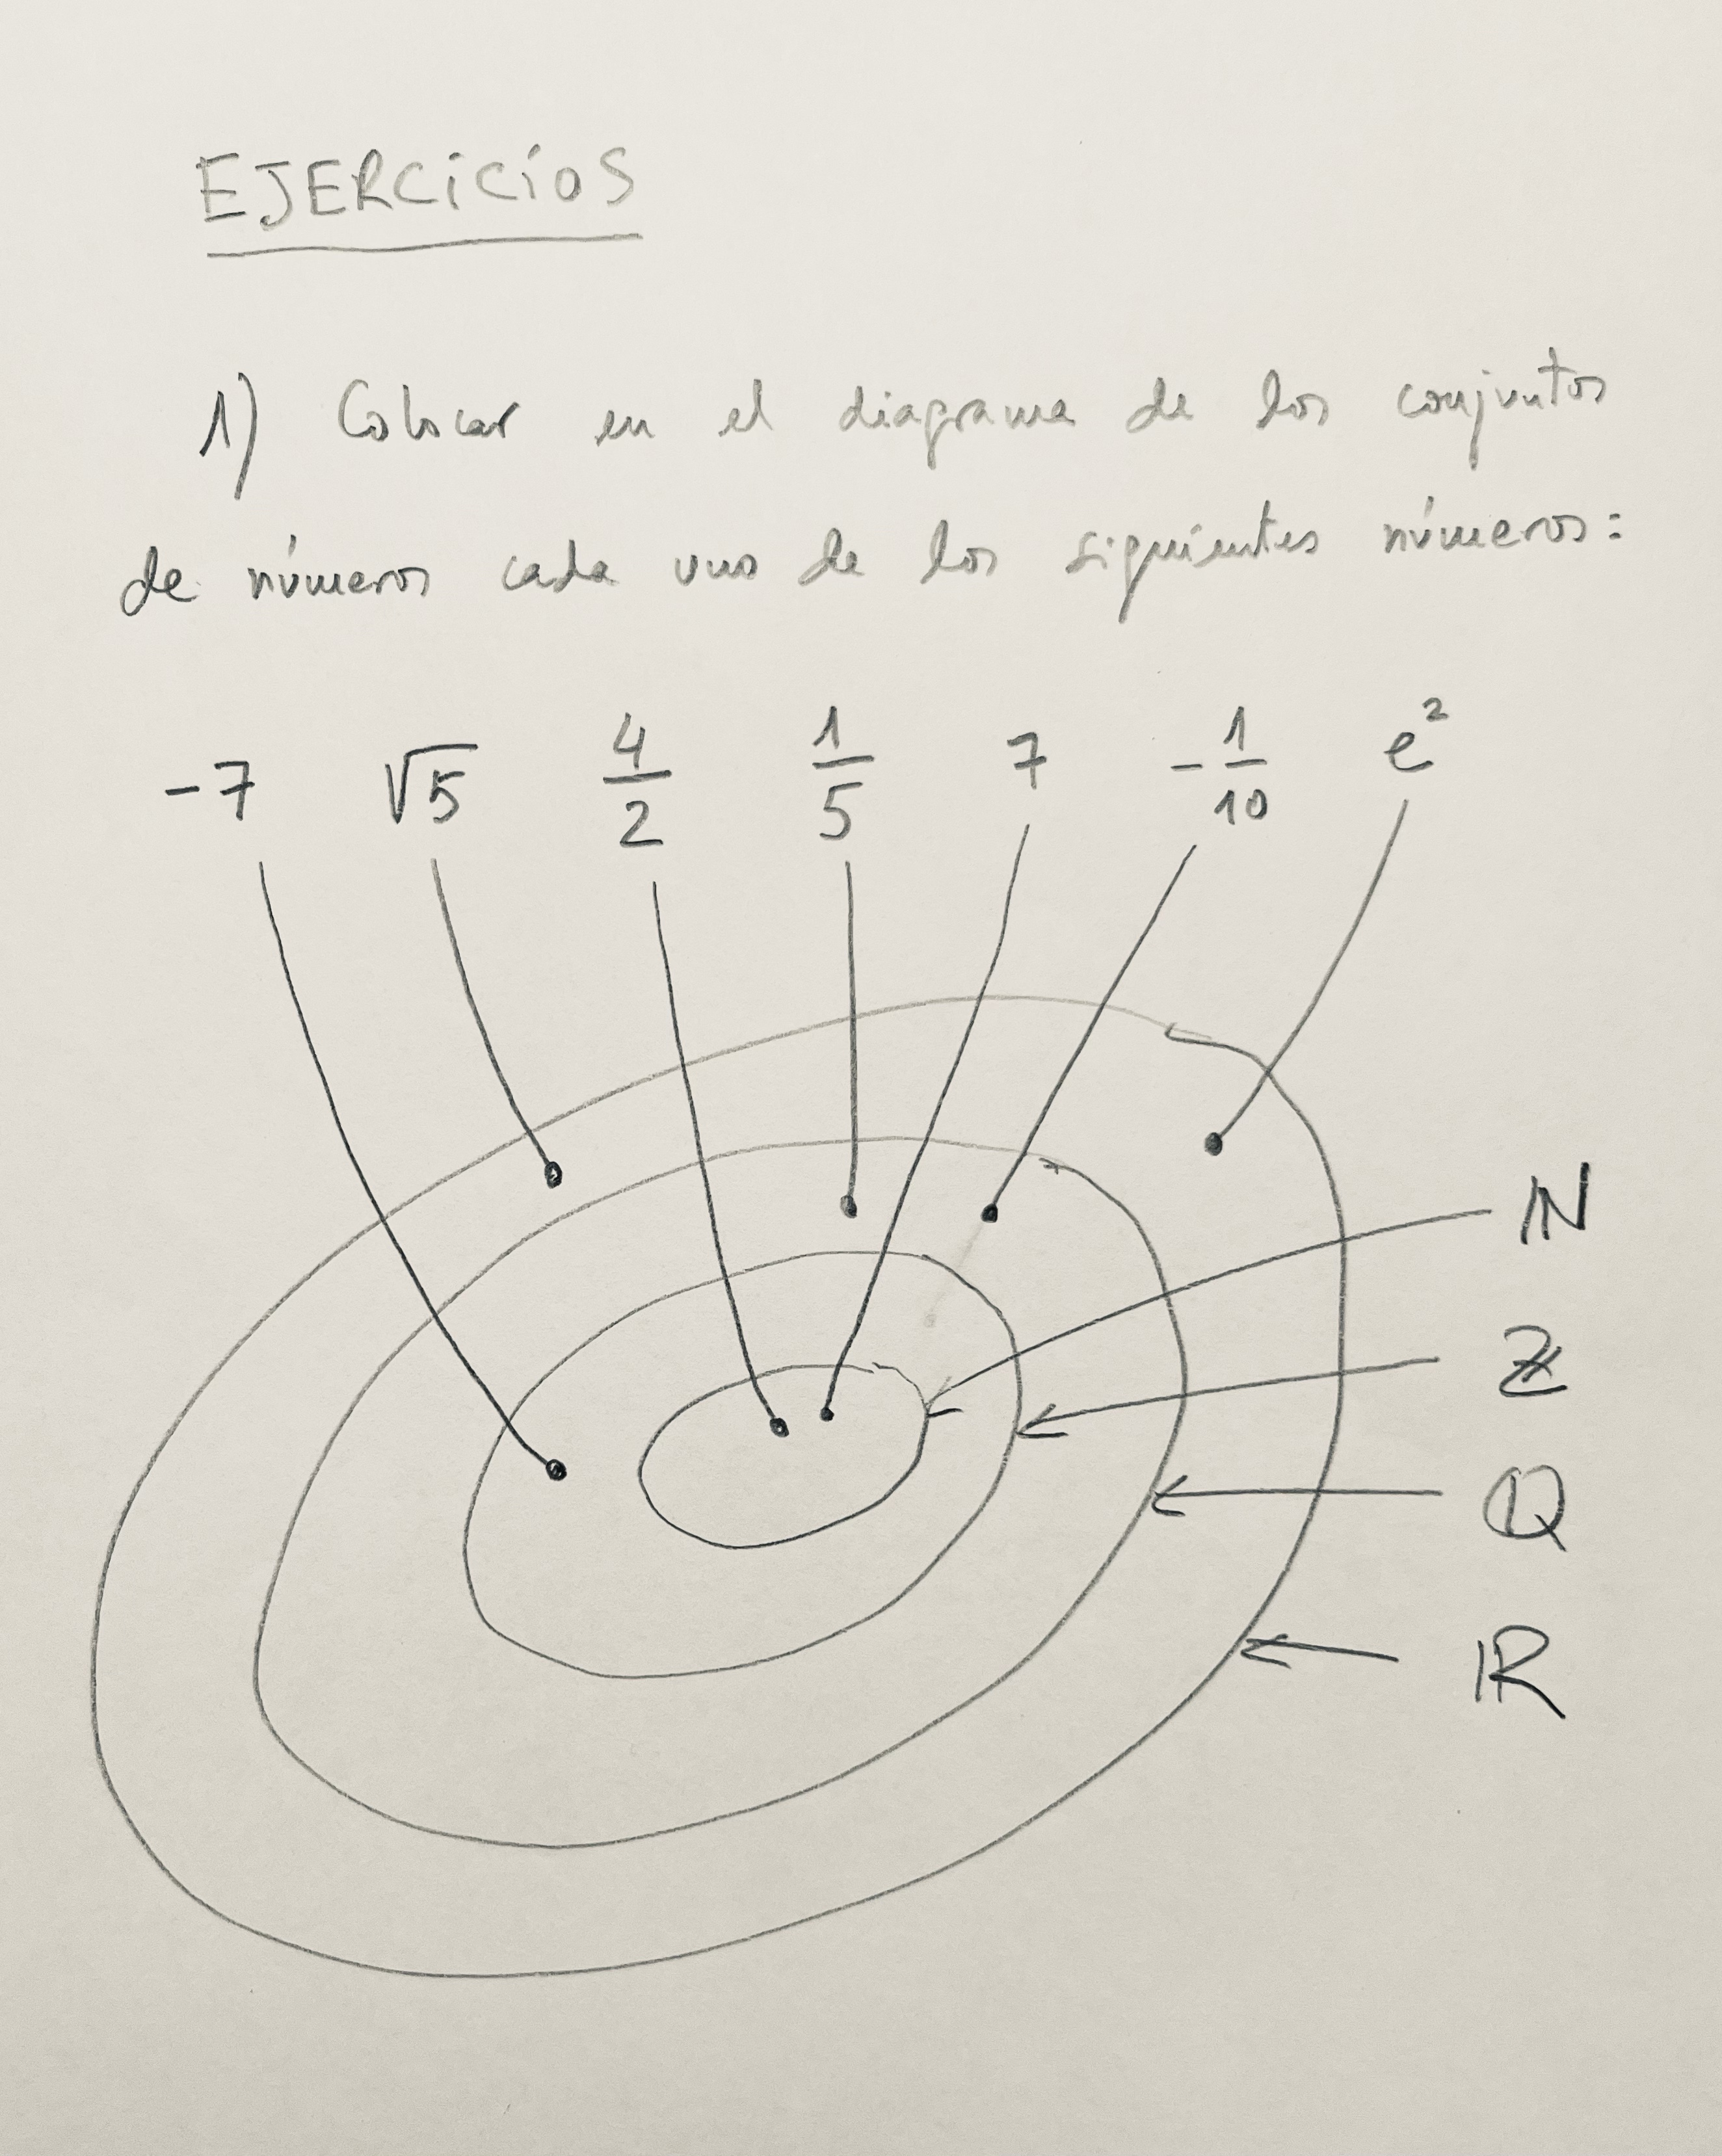 EJERCiCíOS
1) Colocar en el diagrama de los conjuntos
de números cada uno de los siguientes números:
-7 √5 4/2 1/5 7 -1/10 e²
ℕ
ℤ
ℚ
ℝ